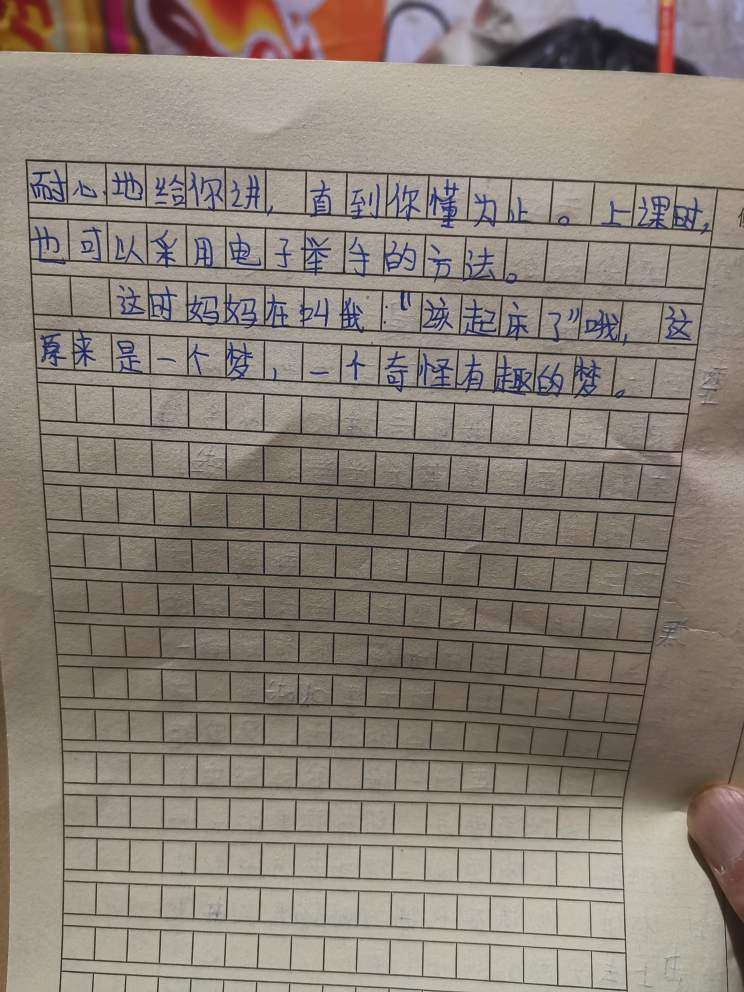 耐心地给你讲,直到你懂为止。上课时,
也可以采用电子举手的方法。
这时妈妈在叫我:"该起床了"哦,这
原来是一个梦,一个奇怪有趣的梦。